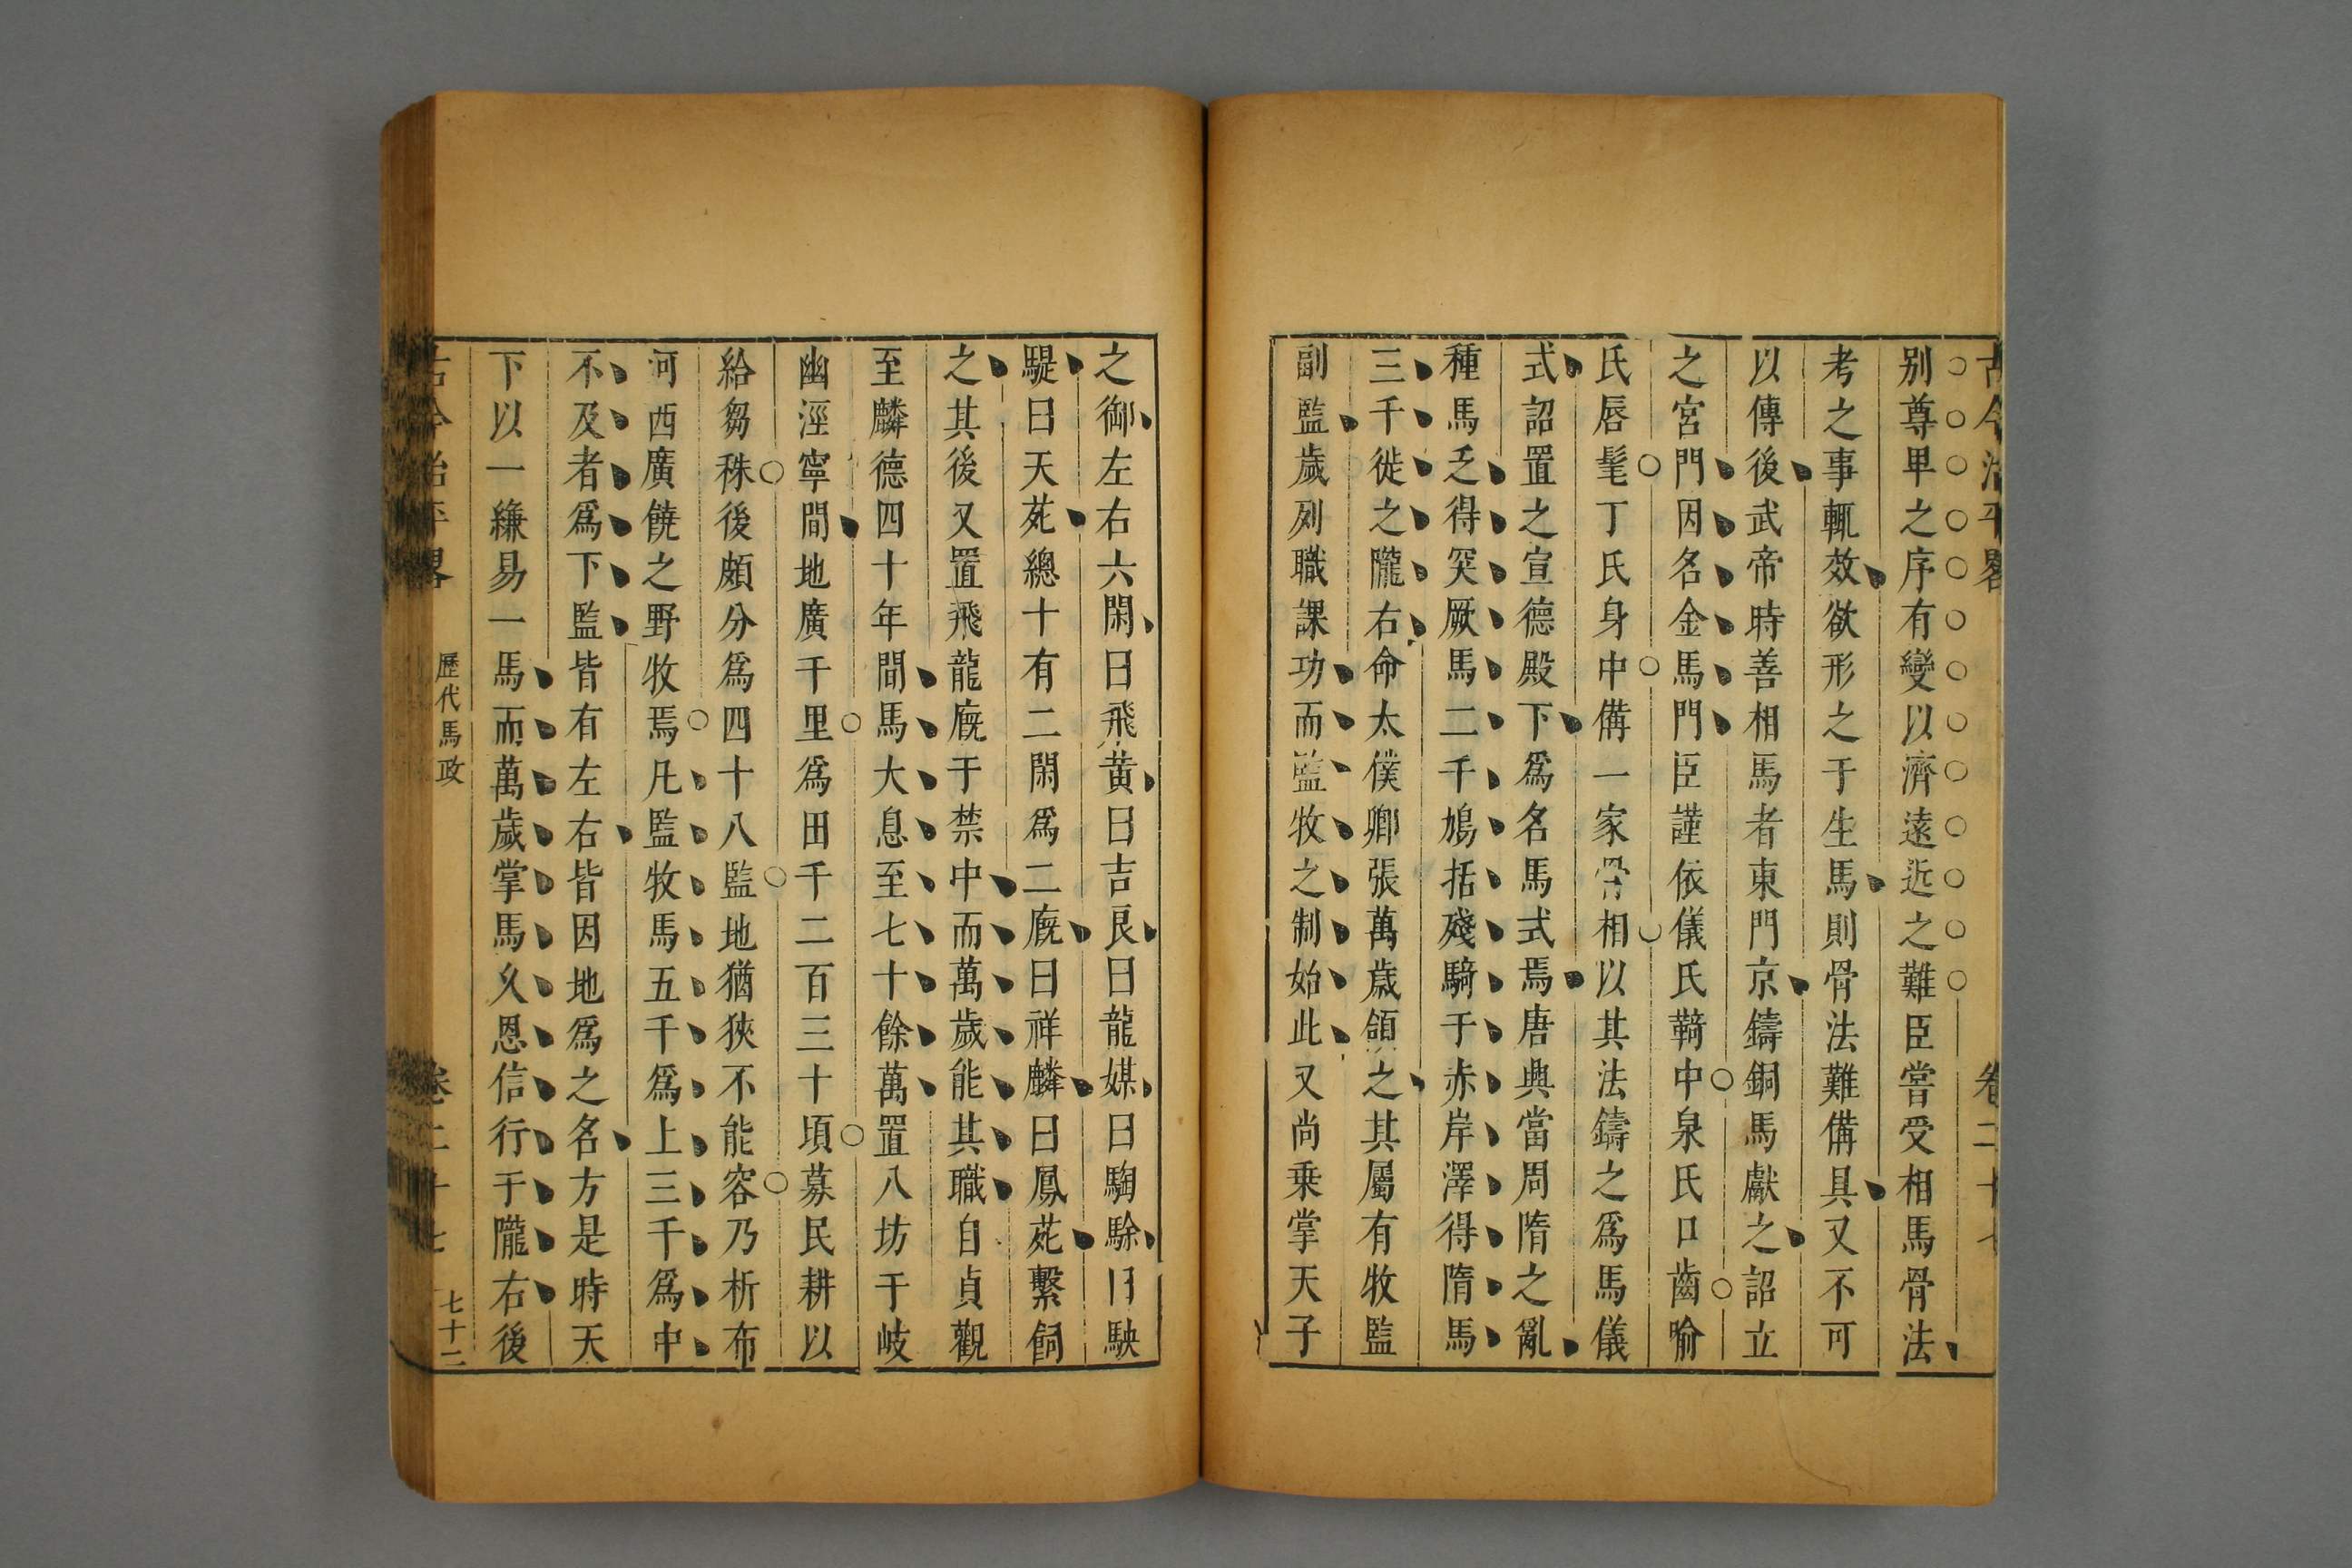 古今治平畧 卷二十七
别尊𤰞之序有變以濟遠近之難臣嘗受相馬骨法
考之事輒效欲形之于生馬則骨法難備具又不可
以傳後武帝時善相馬者東門京鑄銅馬獻之詔立
之宮門因名金馬門臣謹依儀氏䩭中泉氏口齒喻
氏唇髦丁氏身中備一家骨相以其法鑄之爲馬儀
式詔置之宣德殿下爲名馬式焉唐興當周隋之亂
種馬乏得突厥馬二千鳩括殘騎于赤岸澤得隋馬
三千徙之隴右命太僕卿張萬歲領之其屬有牧監
副監歲列職課功而監牧之制始此又尚乗掌天子
之御左右六閑曰飛黄曰吉良曰龍媒曰騊駼曰駃
騠曰天苑總十有二閑爲二廐曰祥麟曰鳳苑繫飼
之其後又置飛龍廐于禁中而萬歲能其職自貞觀
至麟德四十年間馬大息至七十餘萬置八坊于岐
豳涇寧間地廣千里爲田千二百三十頃募民耕以
給芻秣後頗分爲四十八監地猶狹不能容乃析布
河西廣饒之野牧焉凡監牧馬五千爲上三千爲中
不及者爲下監皆有左右皆因地爲之名方是時天
下以一縑易一馬而萬歲掌馬久恩信行于隴右後
古今治平畧 歷代馬政 卷二十七 七十二